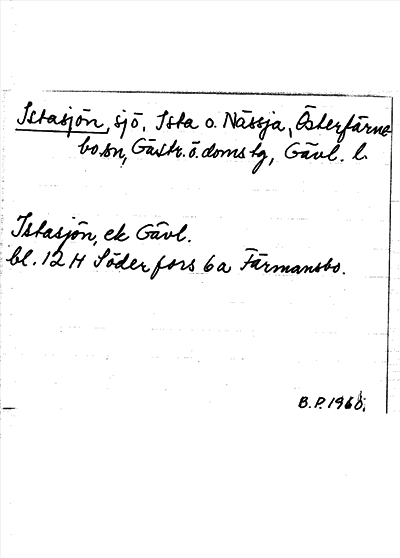 Istasjön, sjö, Ista o. Nässja, Österfärne
bo sn, Gästr. ö. domstg, Gävl. l.
Istasjön, ek Gävl.
bl. 12 H Söderfors 6a Färmansbo.
B.P. 1968.